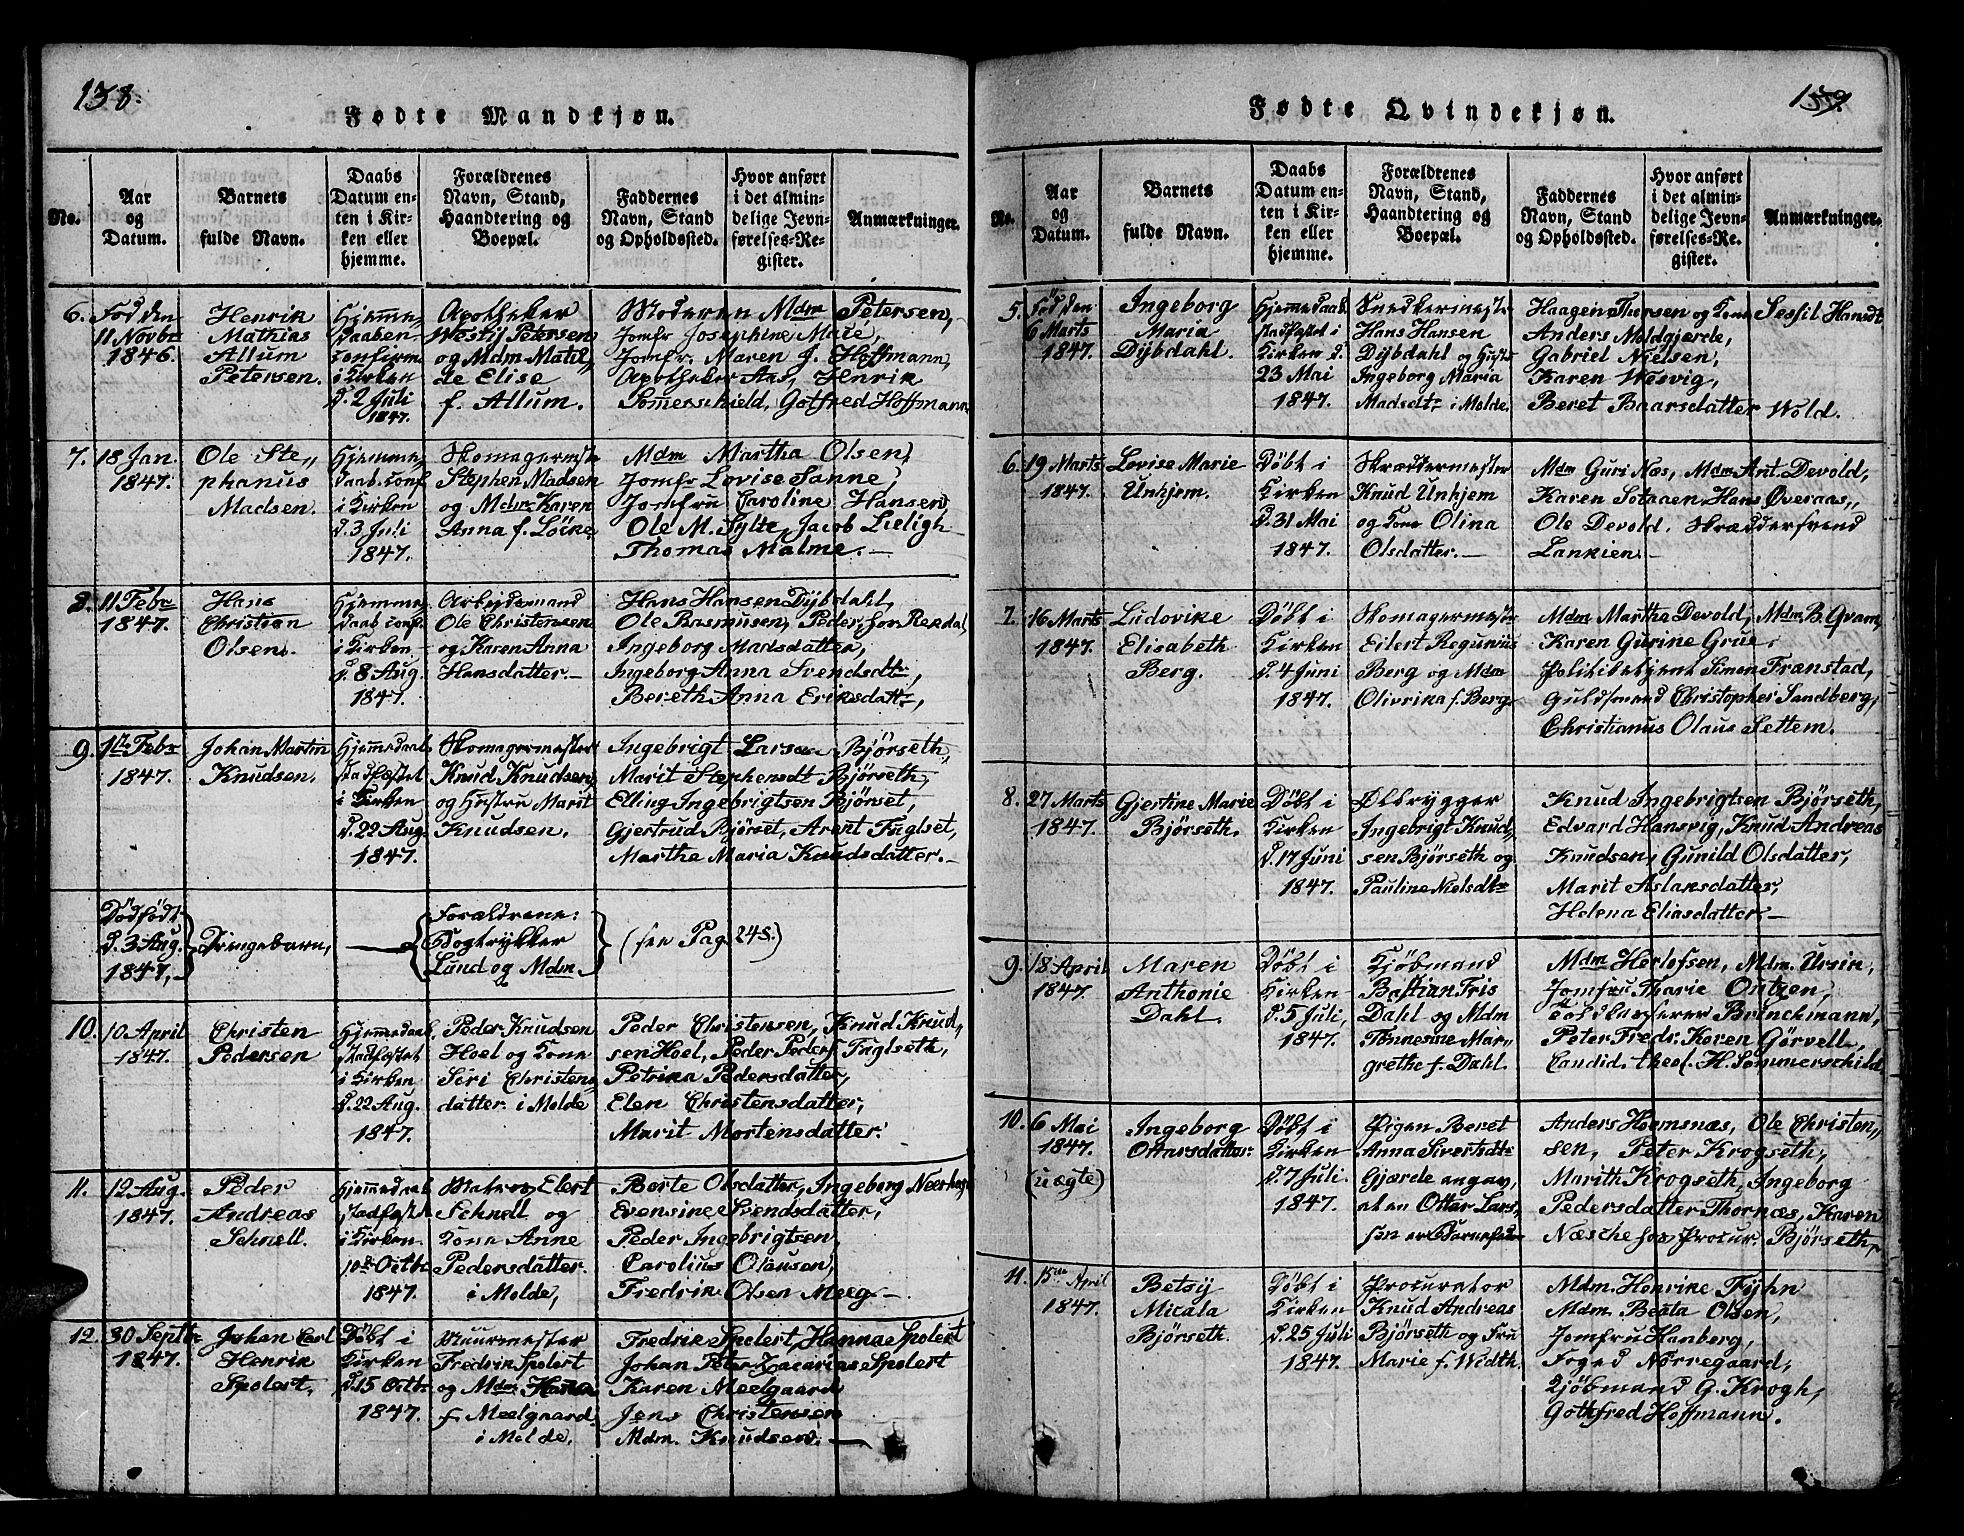 138.
Fødte Mandkjøn.
No.
Aar
og
Datum.
Barnets
fulde Navn.
Daabs
Datum en-
ten i Kir-
ken eller
hjemme.
Forældrenes
Navn, Stand,
Haandtering og
Boepæl.
Faddernes
Navn, Stand
og Opholdssted.
Hvor anført
i det almin-
delige Jevn-
førelses-Re-
gister.
Anmærkninger.
6. Fød den
11 Novbr
1846.
Henrik
Mathias
Allum
Petersen.
Hjemme,,
Daaben
confirm
i Kirken
d. 2 Juli
1847.
Apotheker
Westif Petersen
og Mdm Matil,,
de Elise
f. Allum.
Moderen Mdm Petersen,
Jomfr Josephine Marie,
Jomfr. Maren J. Hoffmann,
Apotheker Aas, Henrik
Somerschield, Gotfred Hoffmann
7. 18 Jan.
1847.
Ole Ste,,
phanus
Madsen.
Hjemme,,
daab conf
i Kirken
d. 3 Juli
1847.
Skomagermester
Stephen Madsen
og Mdm Karen
Anna f. Löcke
Mdm Martha Olsen,
Jomfr Lovise Sanne,
Jomfru Caroline Hansen,
Ole M. Sylte, Jacob Lieligh
Thomas Malme. —
8. 11 Febr
1847.
Hans
Christian
Olsen.
Hjemme,,
daab conf.
i Kirken
d. 8 Aug.
1847.
Arbejdsmand
Ole Christensen
og Karen Anna
Hansdatter. —
Hans Hansen Dÿbdahl,
Ole Rasmusen, Peder
Ingeborg Madsdatter,
Ingeborg Anna Svendsdtr,
Bereth Anna Eriksdattr,
9. Febr
1847.
Johan Martin
Knudsen.
Hjemmedaab
stadfæstet
i Kirken
d. 22 Aug.
1847.
Skomagermester
Knud Knudsen,
og Hustru Marit
Knudsen.
Ingebrigt Larsen Bjørseth,
Marit Stephensdt Bjørseth,
Elling Ingebrigtsen Bjørset,
Gjertrud Bjørset, Arent Fuglset,
Marthe Maria Knudsdatter. —
Dødfødt
d. 3 Aug.
1847, —
Drengebarn,
Forældrene:
Bogtrykker
Lund og Mdm
(see Pag. 248.)
10. 10 April
1847.
Christen
Pedersen
Hjemmedaab
stadfæstet
i Kirken
d. 22 Aug.
1847.
Peder Knudsen
Hoel og Kone
Siri Christens,,
datter i Molde
Peder Christensen, Knud Knud,,
sen Hoel, Peder Peders Fuglseth,
Petrika Pedersdatter,
Elen Christensdatter,
Marit Mortensdatter.
11. 12 Aug.
1847.
Peder
Andreas
Schnell.
Hjemmedaab
stadfæstet
i Kirken
10de Octbr
1847.
Matros Elert
Schnell og
Kone Anne
Pedersdatter
i Molde,
Berte Olsdatter, Ingeborg
Evensine Svendsdatter,
Peder Ingebrigtsen,
Carolius Olausen,
Fredrik Olsen Meeg —
12. 30 Septbr
1847.
Johan Carl
Henrik
Spolert,
Døbt i
Kirken
d. 15 Octbr
1847.
Muurmester
Fredrik Spolert
og Mdm Hanna
f. Meelgaard
i Molde,
Fredrik Spolert, Hanna Spolert
Johan Peter Zacarias Spolert
Karen Meelgaard
Jens Christensen
Mdm. Knudsen. —
139.
Fødte Qvindekjøn.
No.
Aar
og
Datum.
Barnets
fulde Navn.
Daabs
Datum en-
ten i Kir-
ken eller
hjemme.
Forældrenes
Navn, Stand,
Haandtering og
Boepæl.
Faddernes
Navn, Stand
og Opholdssted.
Hvor anført
i det almin-
delige Jevn-
førelses-Re-
gister.
Anmærkninger.
5. Fød den
6 Marts
1847.
Ingeborg
Maria
Dÿbdahl.
Hjemmedaab
stadfæstet i
Kirken d.
23 Mai
1847.
Snedkermester
Hans Hansen
Dÿbdahl og Hustr
Ingeborg Maria
Madsdtr i Molde.
Haagen Thorsen og Kone Sessil Hansdt
Anders Moldgjerde,
Gabriel Nielsen,
Karen Wesvig,
Beret Baarsdatter Wold.
6. 19 Marts
1847.
Lovise Marie
Unhjem.
Døbt i
Kirken
d. 31 Mai
1847.
Skræddermester
Knud Unhjem
og Kone Olina
Olsdatter. —
Mdm Guri Næs, Mdm Ant Devold,
Karen Sotaaen Hans Øveraas,,
Ole Devold. Skræddersvend
Lankien. —
7. 16 Marts
1847.
Ludovike
Elisabeth
Berg.
Døbt i
Kirken
d. 4 Juni
1847.
Skomagermester
Eilert Regunius
Berg og Mdm
Oliverika f. Berg
Mdm Martha Devold, Mdm B. Qvam,
Karen Gurine Grue.
Politibetjent Simen Franstad,
Guldsmed Christopher Sandberg,
Christianus Olaus Settem.
8. 27 Marts
1847.
Gjertine Marie
Bjørseth.
Døbt i
Kirken
d. 17 Juni
1847.
Ølbrygger
Ingebrigt Knud,,
sen Bjørseth og
Pauline Nielsdtr
Knud Ingebrigtsen Bjørseth,
Edvard Hansvig, Knud Andreas
Knudsen, Gunild Olsdatter,
Marit Aslaksdatter,
Helena Eliasdatter. —
9. 18 April
1847.
Maren
Anthonie
Dahl.
Døbt i
Kirken
d. 5 Juli,
1847.
Kjøbmand
Bastian Fris
Dahl og Mdm
Tønnesine Mar,,
grethe f. Dahl.
Mdm Herlofsen, Mdm. Ursin,
Jomfru Marie Ontzen,
Toldkasserer Brinckmann,
Peter Fredr. Koren Görvell,
Candid. theol. H. Sommerschild
10. 6 Mai
1847.
(uægte)
Ingeborg
Ottarsdatter
Døbt i
Kirken
d. 7 Juli.
1847.
Pigen Beret
Anna Sivertsdtr
Gjærde angav,
at en Ottar Lars,,
søn er Barnefader
Anders Hoemsnæs, Ole Christen,,
sen, Peter Krogseth,
Marith Krogseth, Ingeborg
Pedersdatter Thornæs, Karen
Næsche hos Procur. Bjørseth,
11. 15de April
1847.
Betsÿ
Micala
Bjørseth.
Døbt i
Kirken
d. 25 Juli
1847.
Procurator
Knud Andreas
Bjørseth og Fru
Marie f. Width,
Mdm. Henrike Fÿhn
Mdm. Beata Olsen,
Jomfru Hanberg,
Foged Nörregaard,
Kjöbmand G. Krogh,
Gottfred Hoffmann.